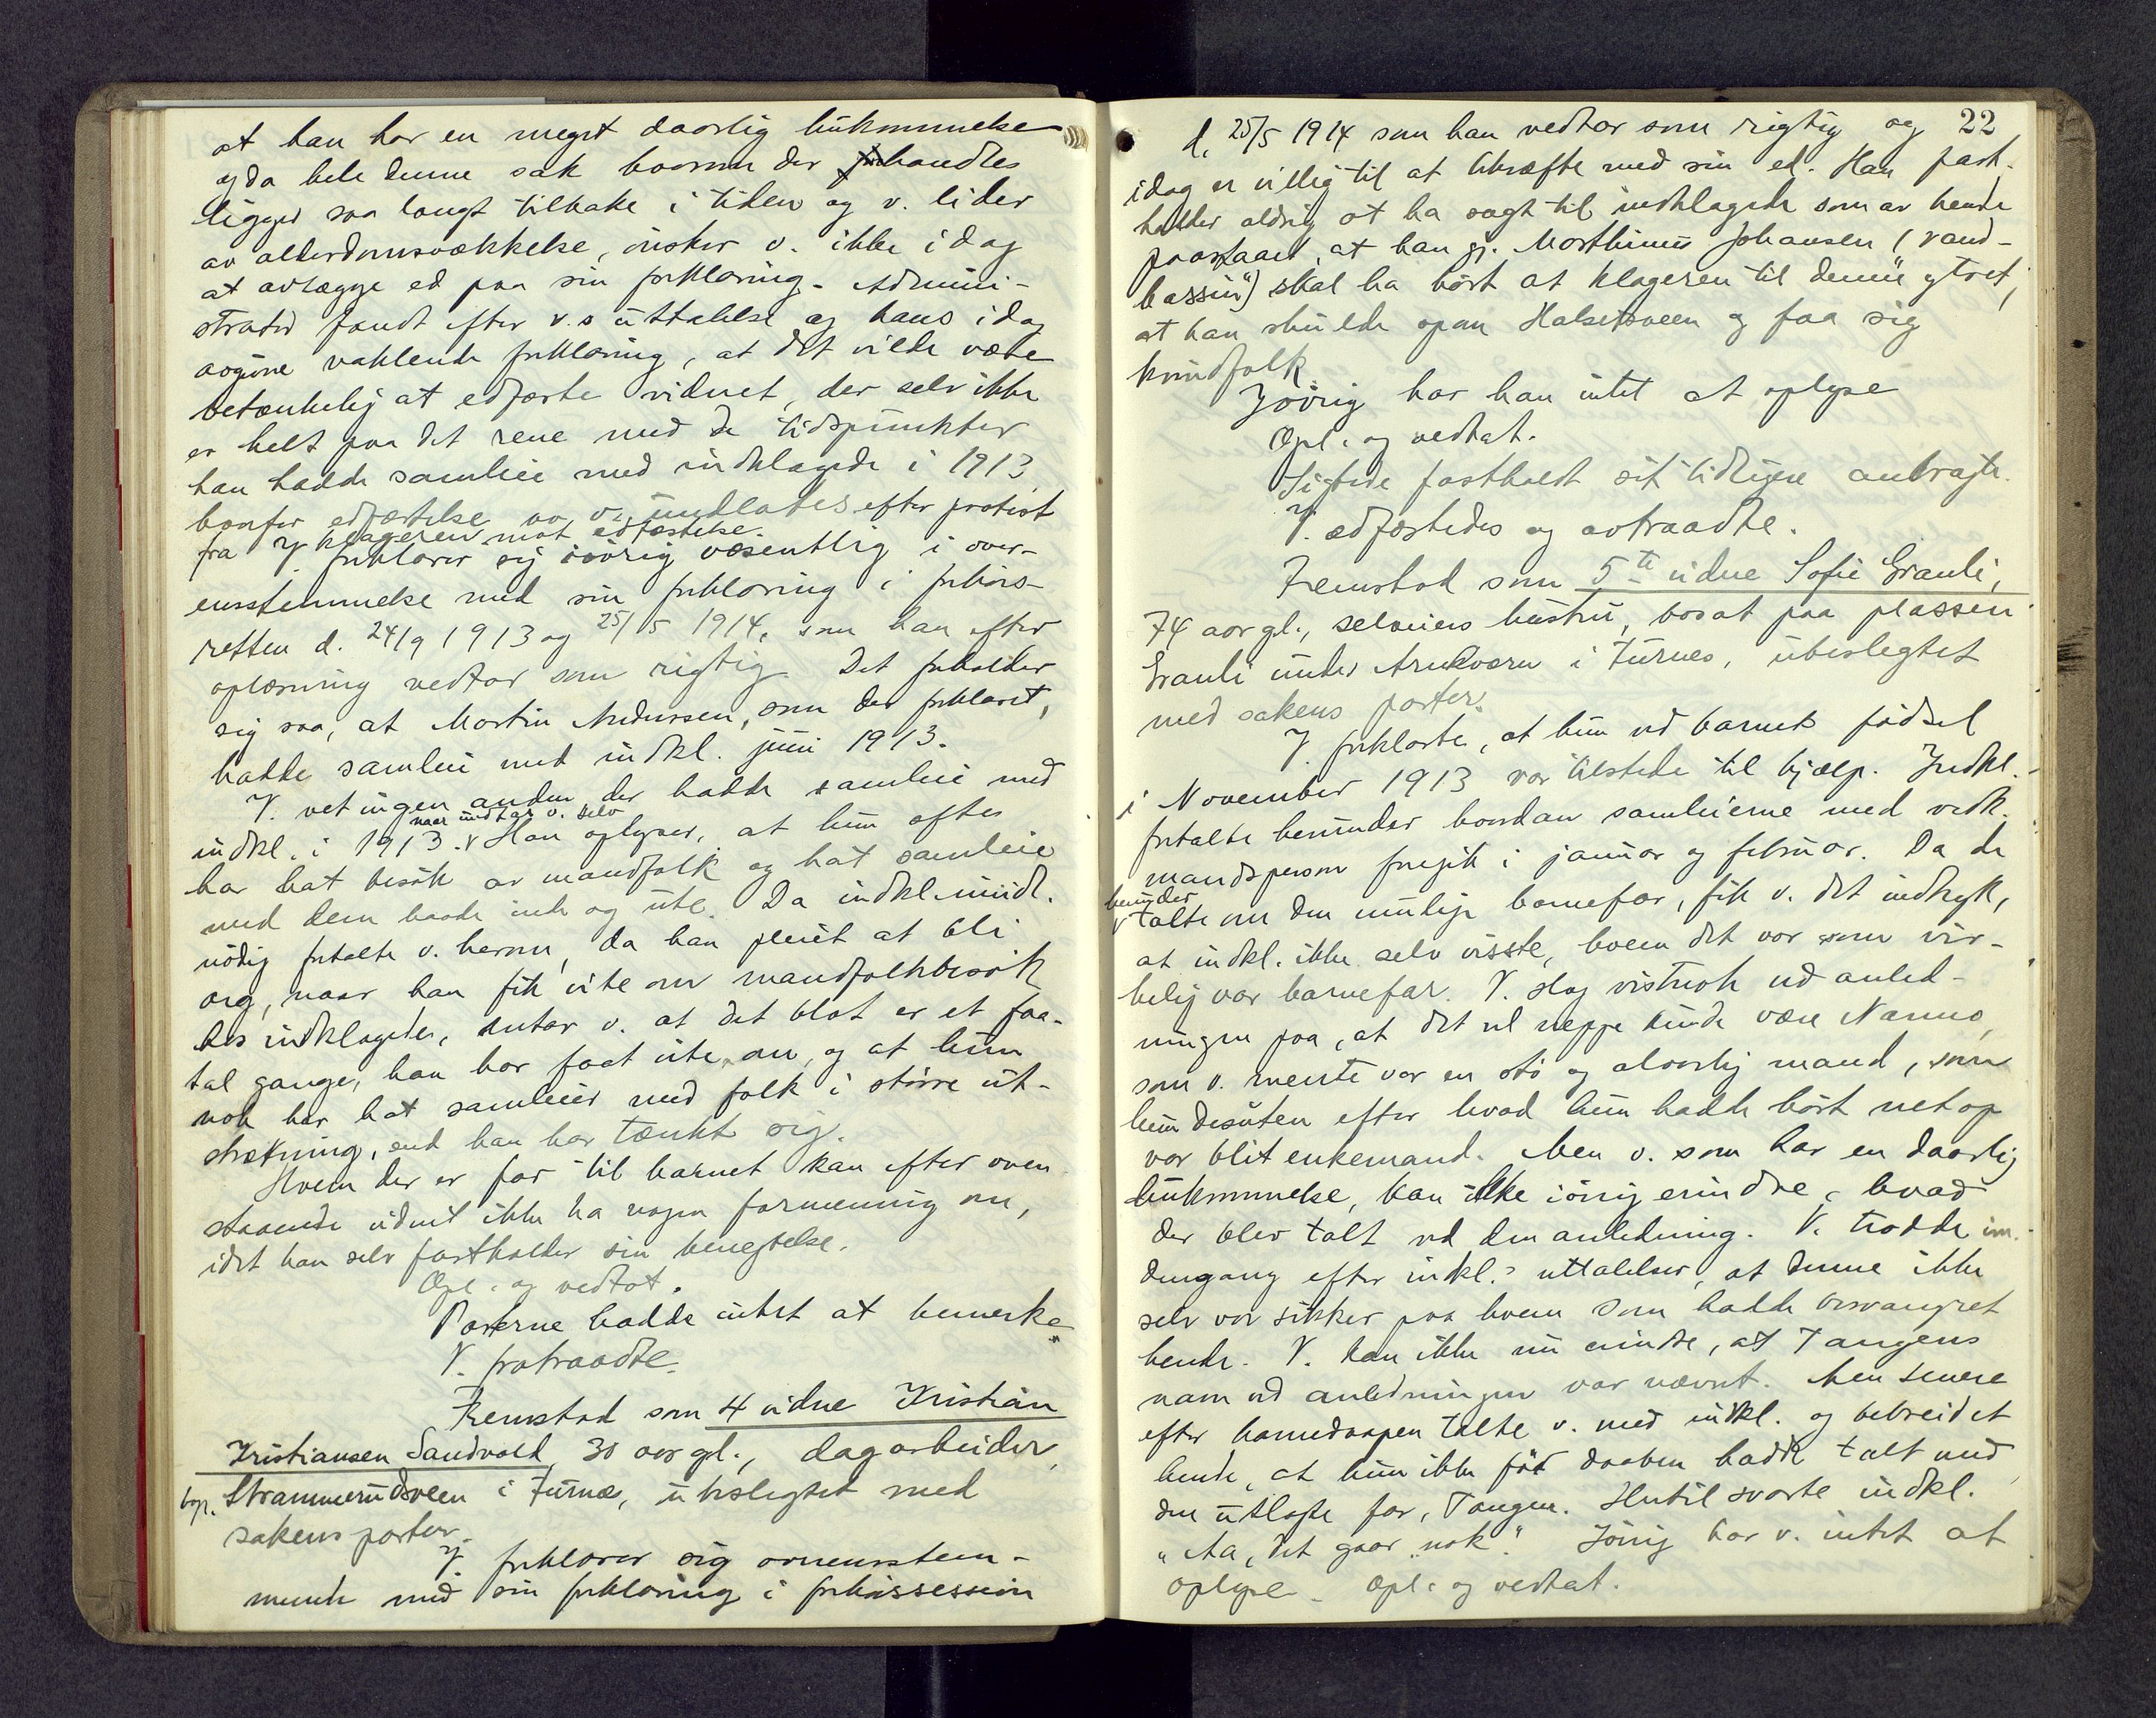 at han har en meget daarlig hukommelse
og da hele denne sak hvorom der forhandles
ligger saa langt tilbake i tiden og v. lider
av alderdomssvækkelse, ønsker v. ikke idag
at avlægge ed paa sin forklaring. Admini-
strator fandt efter v.s uttalelse og hans idag
avgivne vaklende forklaring, at det vilde være
betænkelig at edfæste vidnet, der selv ikke
er helt paa det rene med de tidspunkter
han hadde samleie med indklagede i 1913
hvorfor edfæstelse av v. undlates efter protest
fra klageren mot edfæstelse.
V. forklarer sig iøvrig væsentlig i over-
ensstemmelse med sin forklaring i forhørs-
retten d. 24/9 1913 og 25/5 1914, som han efter
oplæsning vedtar som rigtig. Det forholder
sig saa, at Martin Andersen, som der forklaret,
hadde samleie med indkl. juni 1913.
V. vet ingen anden der hadde samleie med
naar undtas v. selv
indkl. i 1913. v Han oplyser, at hun oftes
har hat besøk av mandfolk og hat samleie
med dem baade inde og ute. Da indkl.
nødig fortalte v. herom, da han pleiet at bli
arg, naar han fik vite om mandfolkbesøk
hos indklagede, antar v. at det blot er et faa-
tal gange, han har faat vite om, og at hun
nok har hat samleier med folk i større ut-
strækning, end han har tænkt sig.
Hvem der er far til barnet kan efter oven
staaende vidnet ikke ha nogen formening om,
idet han selv fastholder sin benegtelse.
Opl. og vedtat.
Parterne hadde intet at bemerke
V. fratraadte.
Fremstod som 4 vidne Kristian
Kristiansen Sandvold, 30 aar gl., dagarbeider,
bop. Strammerudsveen i Furnes, ubeslegtet med
sakens parter.
V. forklarer sig overensstem-
mende med sin forklaring i forhørssession
22
d. 25/5 1914 som han vedtar som rigtig og
idag er villig til at bekræfte med sin ed. Han fast-
holder aldrig at ha sagt til indklagede som av hende
paastaaet, at han gj. Marthinus Johansen ("vand-
bassin") skal ha hørt at klageren til denne ytret,
at han skulde opom Halsetsveen og faa sig
kvindfolk.
Iøvrig har han intet at oplyse
Opl. og vedtat.
Sigtede fastholdt sit tidligere anbragte.
V. edfæstedes og avtraadte.
Fremstod som 5te vidne Sofie Granli,
74 aar gl., selveiers hustru, bosat paa plassen
Granli under Arnkværn i Furnes, ubeslegtet
med sakens parter.
V. forklarte, at hun ved barnets fødsel
i November 1913 var tilstede til hjælp. Indkl.
fortalte herunder hvordan samleierne med vedk.
mandsperson foregik i januar og februar. Da de
herunder
v talte om den mulige barnefar, fik v. det indtryk,
at indkl. ikke selv visste, hvem det var som vir-
kelig var barnefar. V. slog vistnok ved anled-
ningen paa, at det vel neppe kunde være Narmo,
som v. mente var en stø og alvorlig mand, som
hun desuten efter hvad hun hadde hørt netop
var blit enkemand. Men v. som har en daarlig
hukommelse, kan ikke iøvrig erindre, hvad
der blev talt ved den anledning. V. trodde im.
dengang efter indkl.s uttalelser, at denne ikke
selv var sikker paa hvem som hadde besvangret
hende. V. kan ikke nu erindre, at Tangens
navn ved anledningen var nævnt. Men senere
efter barnedaapen talte v. med indkl. og bebreidet
hende, at hun ikke før daaben hadde talt med
den utlagte far, Tangen. Hertil svarte indkl.
„Aa, det gaar nok." Iøvrig har v. intet at
oplyse. Opl. og vedtat.